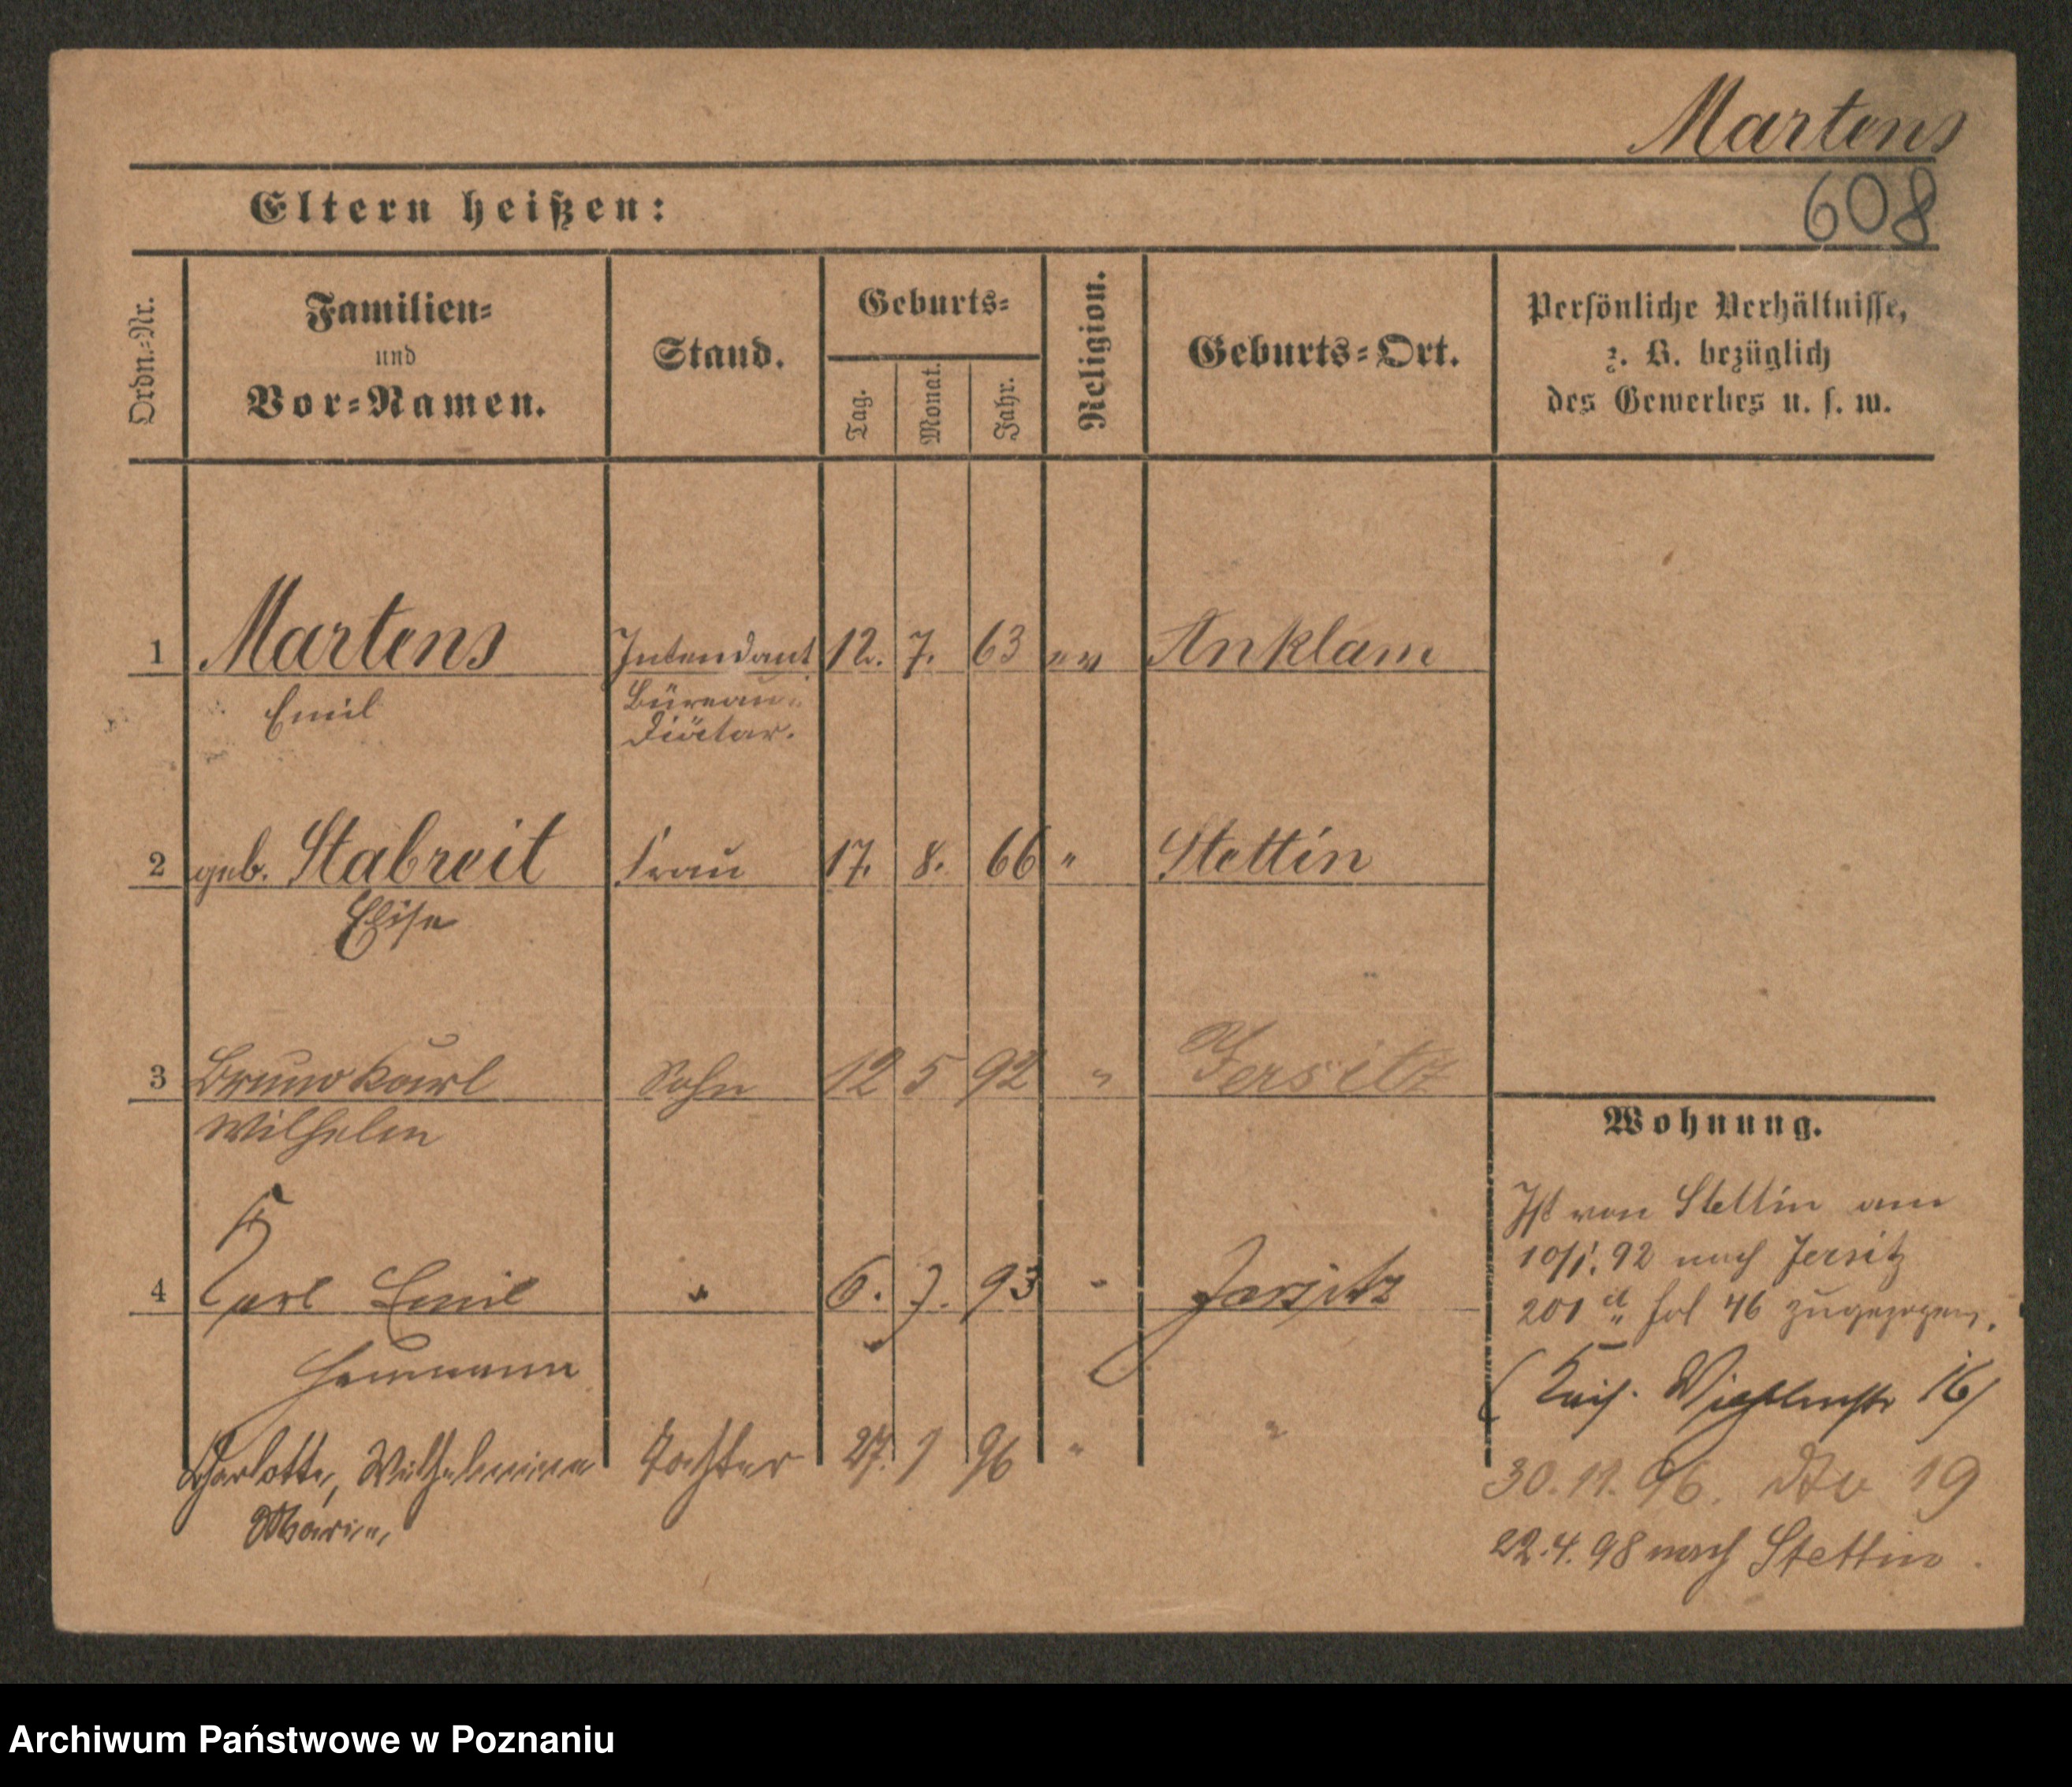 Martens
608
Eltern heißen:
Ordn.-Nr.
Familien-
und
Vor-Namen.
Stand.
Geburts-
Tag.
Monat.
Jahr.
Religion.
Geburts-Ort.
Persönliche Verhältnisse,
z. B. bezüglich
des Gewerbes u. s. w.
1 Martens Intendant 12. 7. 63 ev Anklam
Emil Büreau-
Diätar.
2 geb. Stabreit Frau 17. 8. 66 " Stettin
Elise
3 Bruno Karl Sohn 12 5 92 " Jersitz
Wilhelm
Wohnung.
Ist von Stettin am
10/1. 92 nach Jersitz
4 Karl Emil " 6. 7. 93 " Jersitz
201 fol 46 zugezogen.
Hermann
16/
Charlotte, Wilhelmine Tochter 27. 1 96 " "
30. 11. 96. 19
Marie,
22.4.98 nach Stettin.
Archiwum Państwowe w Poznaniu